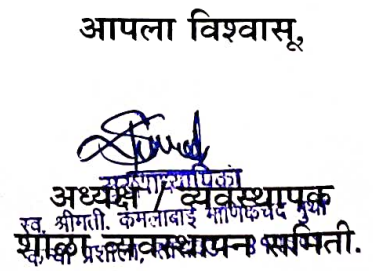 आपला विश्वासू,
मुख्याध्यापिका
अध्यक्ष / व्यवस्थापक
स्व. श्रीमती. कमलाबाई माणिकचंद मुथा
शाळा व्यवस्थापन समिती.
कन्या प्रशाला,